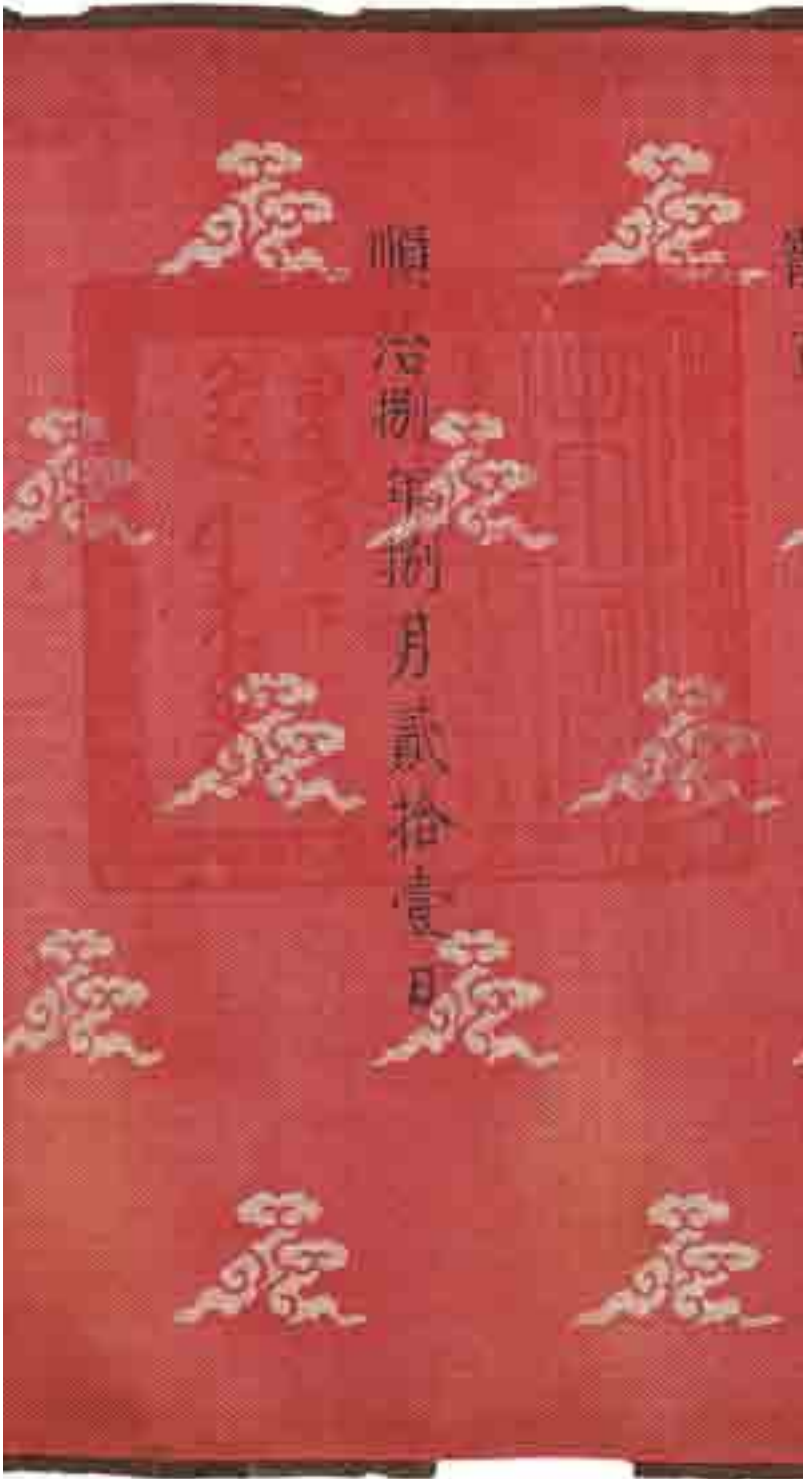 順治捌年捌月貳拾壹日